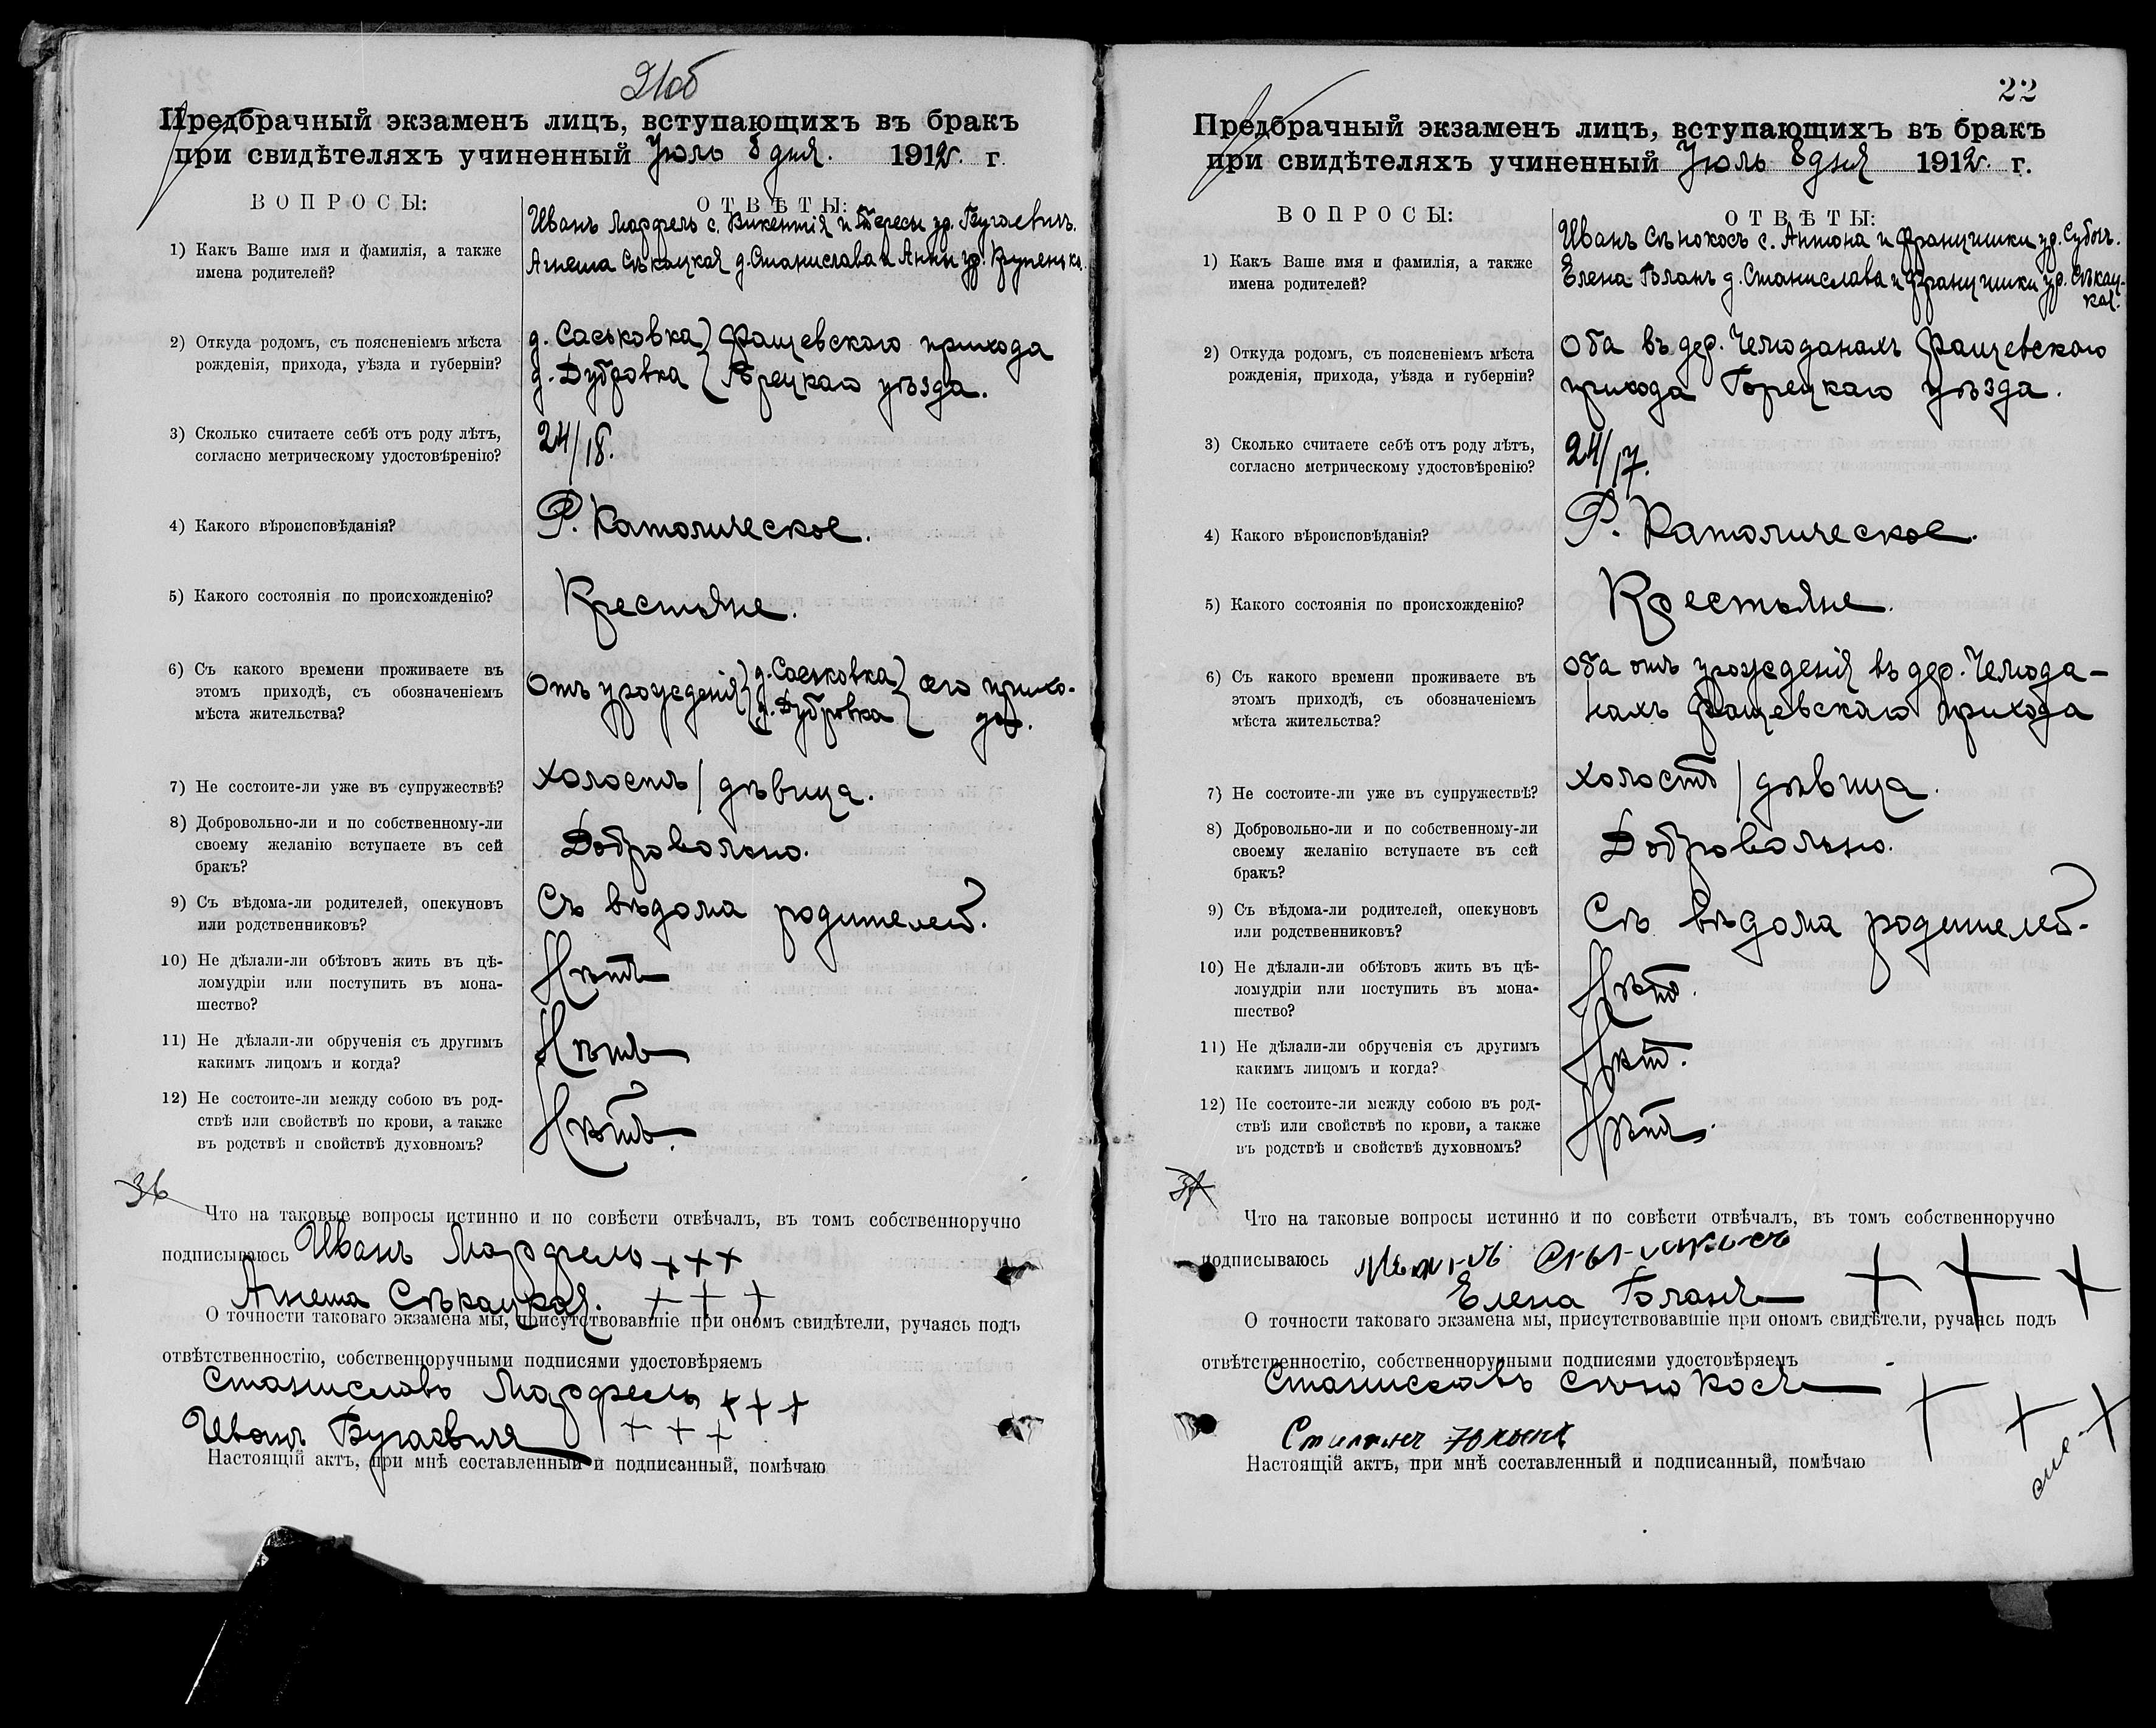 21об
Предбрачный экзаменъ лицъ, вступающихъ въ бракъ
при свидѣтеляхъ учиненный Іюль 8 дня. 1912. г.
ВОПРОСЫ:
ОТВѢТЫ:
1) Какъ Ваше имя и фамилія, а также
имена родителей?
Иванъ Марфель с. Викентія и Тересы ур. Бугаевичъ.
Агнеша Сѣкацкая д. Станислава и Анны ур.
2) Откуда родомъ, съ поясненіемъ мѣста
рожденія, прихода, уѣзда и губерніи?
д. Саськовка) Фащевскаго прихода
д. Дубровка { Горецкаго уѣзда.
3) Сколько считаете себѣ отъ роду лѣтъ,
согласно метрическому удостовѣренію?
24/18.
4) Какого вѣроисповѣданія?
Р. Католическое.
5) Какого состоянія по происхожденію?
Крестьяне.
6) Съ какого времени проживаете въ
этомъ приходѣ, съ обозначеніемъ
мѣста жительства?
Отъ урожденія} д. Саськовка} сего прихо-
д. Дубровка { да.
7) Не состоите-ли уже въ супружествѣ?
холостъ / дѣвица.
8) Добровольно-ли и по собственному-ли
своему желанію вступаете въ сей
бракъ?
Добровольно.
9) Съ вѣдома-ли родителей, опекуновъ
или родственниковъ?
Съ вѣдома родителей.
10) Не дѣлали-ли обѣтовъ жить въ цѣ-
ломудріи или поступить въ мона-
шество?
Нѣтъ
11) Не дѣлали-ли обрученія съ другимъ
какимъ лицомъ и когда?
Нѣтъ
12) Не состоите-ли между собою въ род-
ствѣ или свойствѣ по крови, а также
въ родствѣ и свойствѣ духовномъ?
Нѣтъ.
36
Что на таковые вопросы истинно и по совѣсти отвѣчалъ, въ томъ собственноручно
подписываюсь Иванъ Марфель +++
Агнеша Сѣкацкая. + + +
О точности таковаго экзамена мы, присутствовавшіе при ономъ свидѣтели, ручаясь подъ
отвѣтственностію, собственноручными подписями удостовѣряемъ
Станиславъ Марфель +++
Иванъ Бугаевичъ + + +
Настоящій актъ, при мнѣ составленный и подписанный, помѣчаю
22
Предбрачный экзаменъ лицъ, вступающихъ въ бракъ
при свидѣтеляхъ учиненный Іюль 8 дня 1912. г.
ВОПРОСЫ:
ОТВѢТЫ:
1) Какъ Ваше имя и фамилія, а также
имена родителей?
Иванъ Сѣнокосъ с. Антона и Францишки ур. Субочъ.
Елена Голанъ д. Станислава и Францишки ур. Сѣкац-
кая.
2) Откуда родомъ, съ поясненіемъ мѣста
рожденія, прихода, уѣзда и губерніи?
Оба въ дер. Чемоданахъ Фащевскаго
прихода Горецкаго уѣзда.
3) Сколько считаете себѣ отъ роду лѣтъ,
согласно метрическому удостовѣренію?
24/17.
4) Какого вѣроисповѣданія?
Р. Католическое.
5) Какого состоянія по происхожденію?
Крестьяне.
6) Съ какого времени проживаете въ
этомъ приходѣ, съ обозначеніемъ
мѣста жительства?
Оба отъ урожденія въ дер. Чемода-
нахъ Фащевскаго прихода
7) Не состоите-ли уже въ супружествѣ?
холостъ / дѣвица.
8) Добровольно-ли и по собственному-ли
своему желанію вступаете въ сей
бракъ?
Добровольно.
9) Съ вѣдома-ли родителей, опекуновъ
или родственниковъ?
Съ вѣдома родителей.
10) Не дѣлали-ли обѣтовъ жить въ цѣ-
ломудріи или поступить въ мона-
шество?
Нѣтъ.
11) Не дѣлали-ли обрученія съ другимъ
какимъ лицомъ и когда?
Нѣтъ.
12) Не состоите-ли между собою въ род-
ствѣ или свойствѣ по крови, а также
въ родствѣ и свойствѣ духовномъ?
Нѣтъ.
37
Что на таковые вопросы истинно и по совѣсти отвѣчалъ, въ томъ собственноручно
подписываюсь
Елена Голанъ + + +
О точности таковаго экзамена мы, присутствовавшіе при ономъ свидѣтели, ручаясь подъ
отвѣтственностію, собственноручными подписями удостовѣряемъ
Станиславъ Сѣнокосъ + + +
Настоящій актъ, при мнѣ составленный и подписанный, помѣчаю